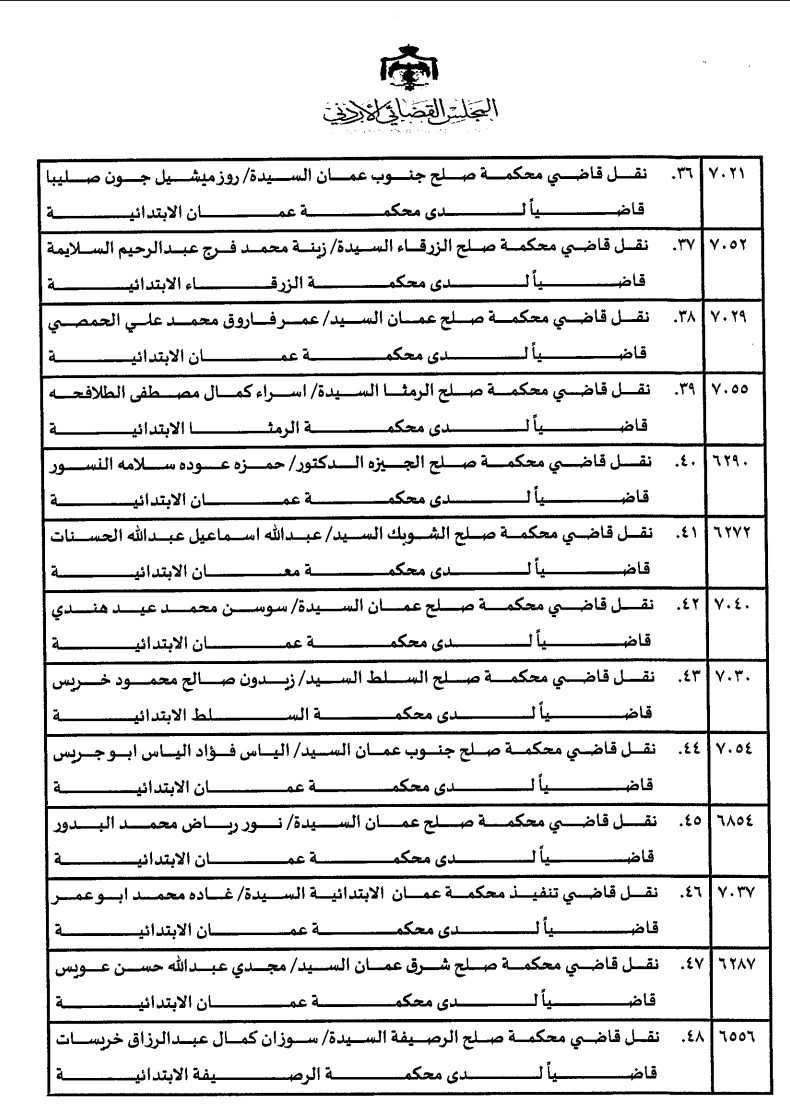 المجلس القضائي الأردني
٧٠٢١ ٣٦. نقل قاضي محكمة صلح جنوب عمان السيدة/ روز ميشيل جون صليبا
قاضياً لدى محكمة عمان الابتدائية
٧٠٥٢ ٣٧. نقل قاضي محكمة صلح الزرقاء السيدة/ زينة محمد فرج عبدالرحيم السلايمة
قاضياً لدى محكمة الزرقاء الابتدائية
٧٠٢٩ ٣٨. نقل قاضي محكمة صلح عمان السيد/ عمر فاروق محمد علي الحمصي
قاضياً لدى محكمة عمان الابتدائية
٧٠٥٥ ٣٩. نقل قاضي محكمة صلح الرمثا السيدة/ اسراء كمال مصطفى الطلافحه
قاضياً لدى محكمة الرمثا الابتدائية
٦٢٩٠ ٤٠. نقل قاضي محكمة صلح الجيزه الدكتور/ حمزه عوده سلامه النسور
قاضياً لدى محكمة عمان الابتدائية
٦٢٧٢ ٤١. نقل قاضي محكمة صلح الشوبك السيد/ عبدالله اسماعيل عبدالله الحسنات
قاضياً لدى محكمة معان الابتدائية
٧٠٤٠ ٤٢. نقل قاضي محكمة صلح عمان السيدة/ سوسن محمد عيد هندي
قاضياً لدى محكمة عمان الابتدائية
٧٠٣٠ ٤٣. نقل قاضي محكمة صلح السلط السيد/ زيدون صالح محمود خريس
قاضياً لدى محكمة السلط الابتدائية
٧٠٥٤ ٤٤. نقل قاضي محكمة صلح جنوب عمان السيد/ الياس فؤاد الياس ابو جريس
قاضياً لدى محكمة عمان الابتدائية
٦٨٥٤ ٤٥. نقل قاضي محكمة صلح عمان السيدة/ نور رياض محمد البدور
قاضياً لدى محكمة عمان الابتدائية
٧٠٣٧ ٤٦. نقل قاضي تنفيذ محكمة عمان الابتدائية السيدة/ غاده محمد ابو عمر
قاضياً لدى محكمة عمان الابتدائية
٦٢٨٧ ٤٧. نقل قاضي محكمة صلح شرق عمان السيد/ مجدي عبدالله حسن عويس
قاضياً لدى محكمة عمان الابتدائية
٦٥٥٦ ٤٨. نقل قاضي محكمة صلح الرصيفة السيدة/ سوزان كمال عبدالرزاق خريسات
قاضياً لدى محكمة الرصيفة الابتدائية